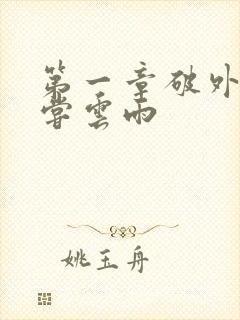 第一章破外
嘗雲雨
姚玉舟